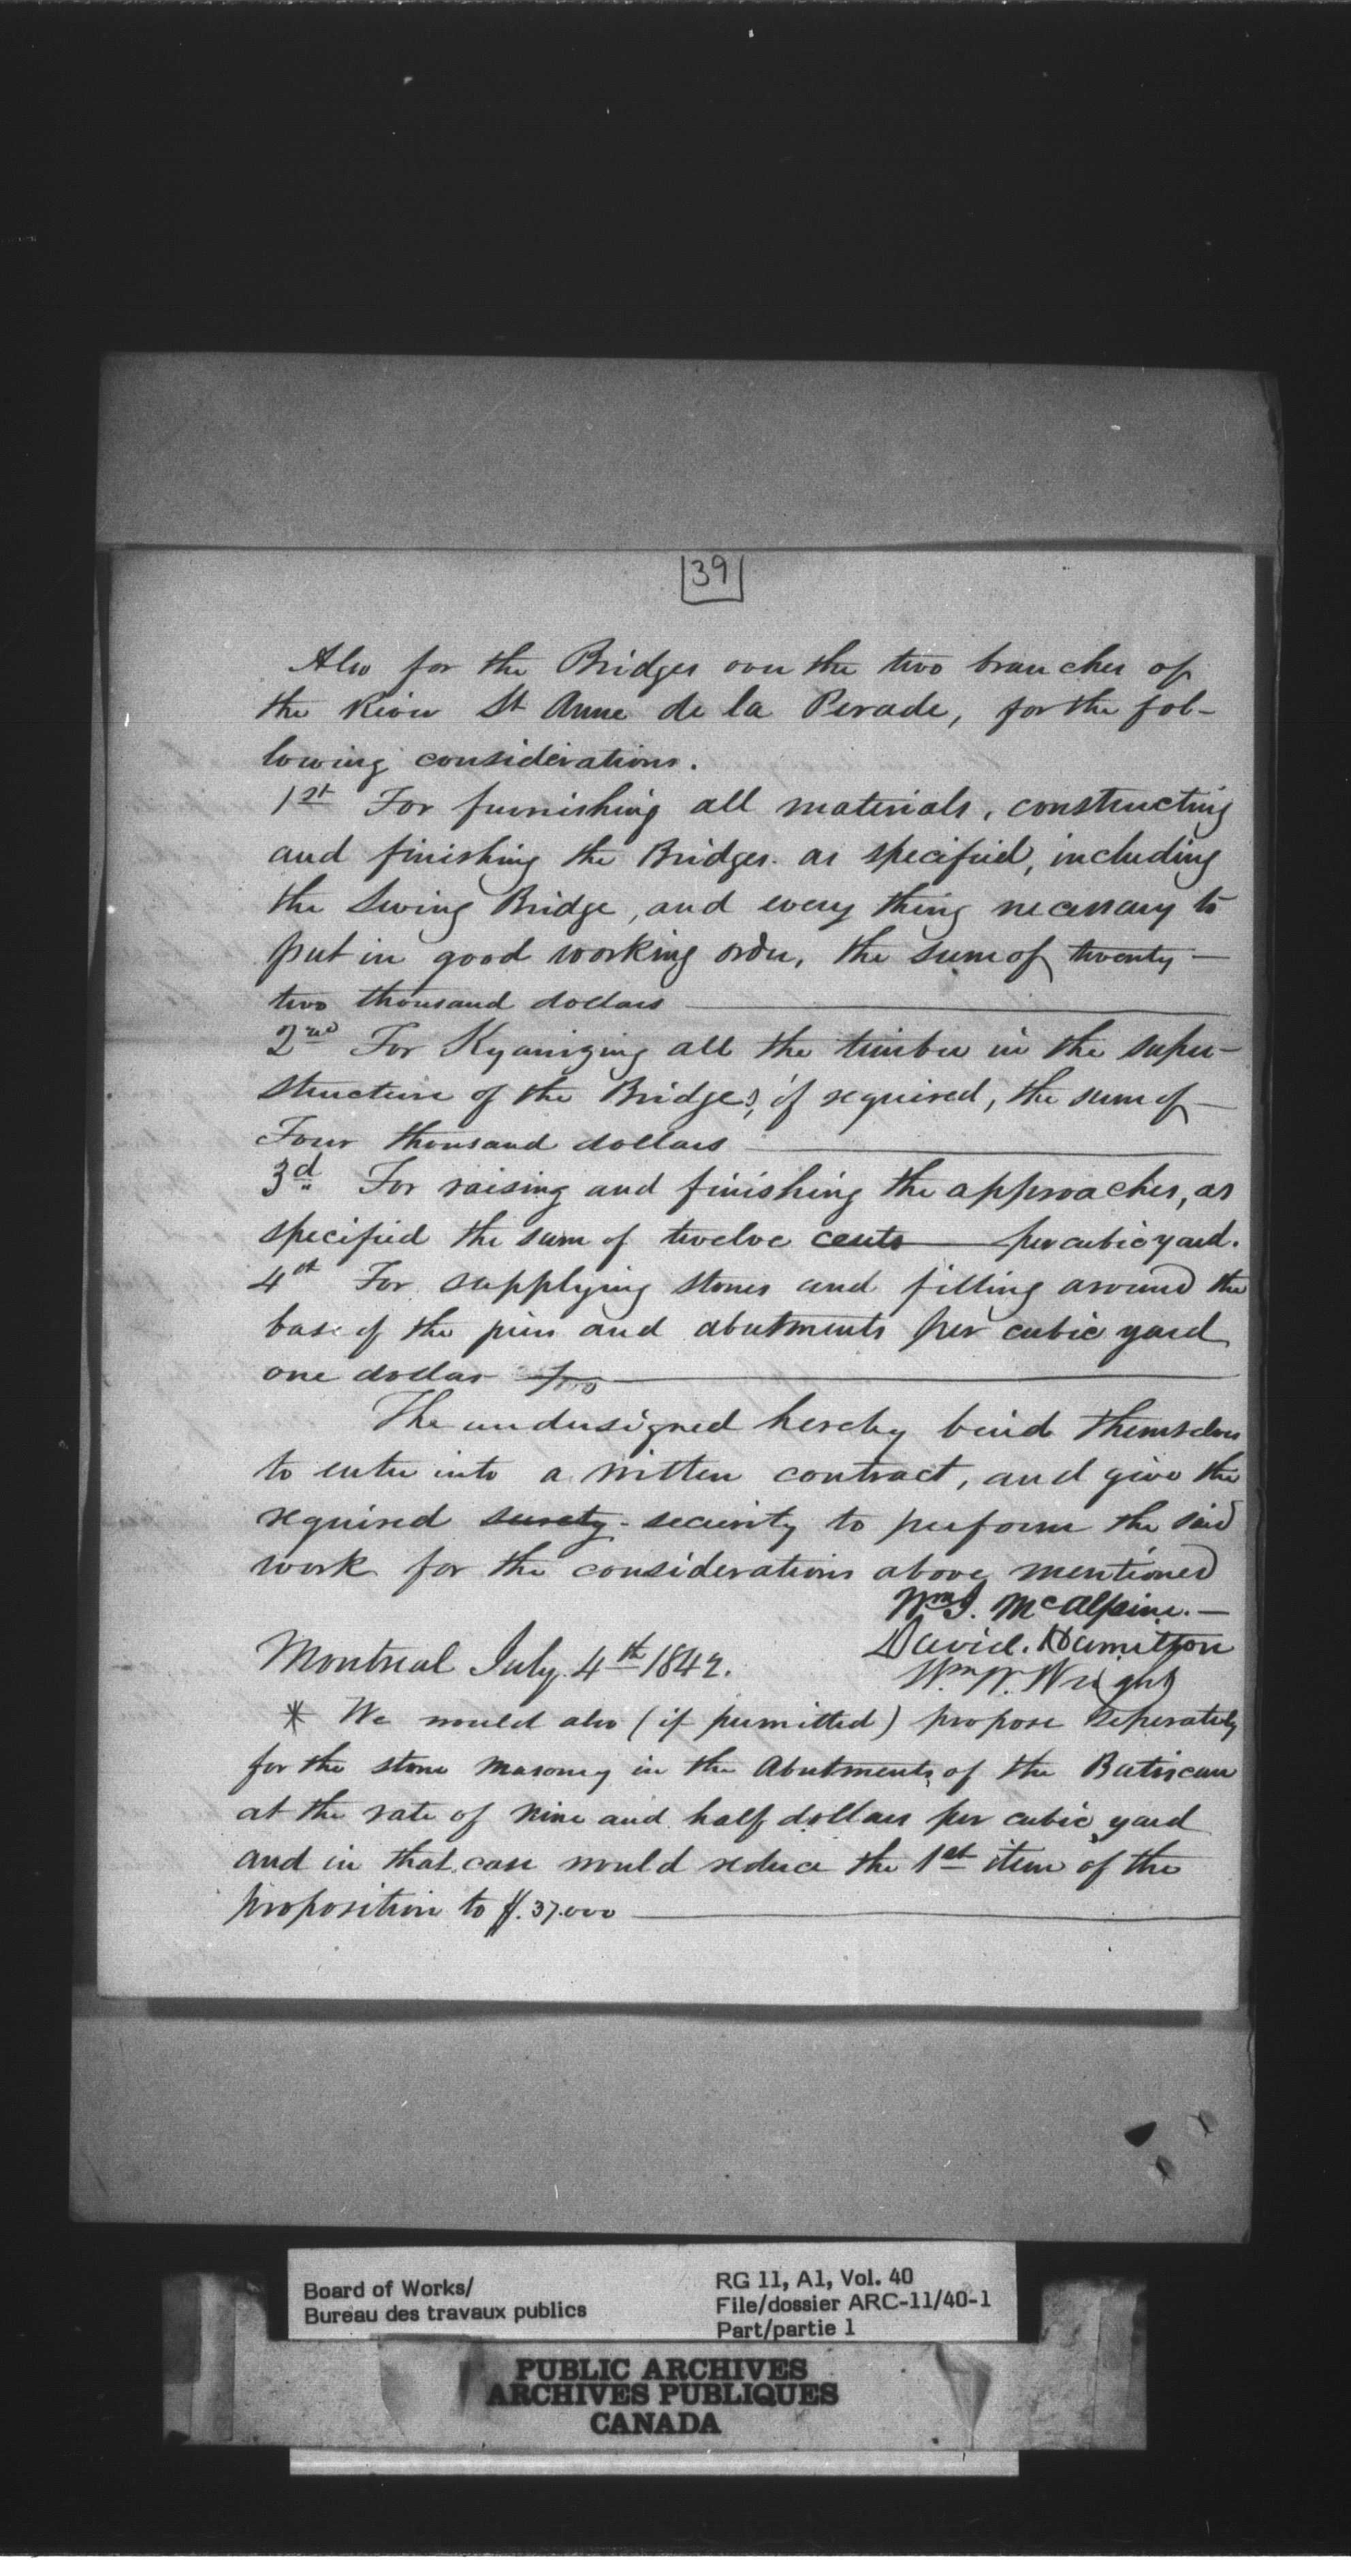 39
Also for the Bridges over the two branches of
the River St Anne de la Perade, for the fol-
lowing considerations.
1st For furnishing all materials, constructing
and finishing the Bridges as specified, including
the Swing Bridge, and every thing necessary to
put in good working order, the sum of twenty—
two thousand dollars
2nd For Kyanizing all the timber in the super-
structure of the Bridges, if required, the sum of—
Four thousand dollars
3d For raising and finishing the approaches, as
specified the sum of twelve cents — per cubic yard.
4th For supplying stones and filling around the
base of the piers and abutments per cubic yard
one dollar
The undersigned hereby bind themselves
to enter into a written contract, and give the
required surety - security to perform the said
work for the considerations above mentioned
Wm J. McAlpine. —
David. Hamilton
Montreal July. 4th 1842.
Wm W. Wright
* We would also (if permitted) propose seperately
for the stone masonry in the Abutments of the Batiscan
at the rate of nine and half dollars per cubic yard
and in that case would reduce the 1st item of the
proposition to $. 37.000
Board of Works/
Bureau des travaux publics
RG 11, A1, Vol. 40
File/dossier ARC-11/40-1
Part/partie 1
PUBLIC ARCHIVES
ARCHIVES PUBLIQUES
CANADA